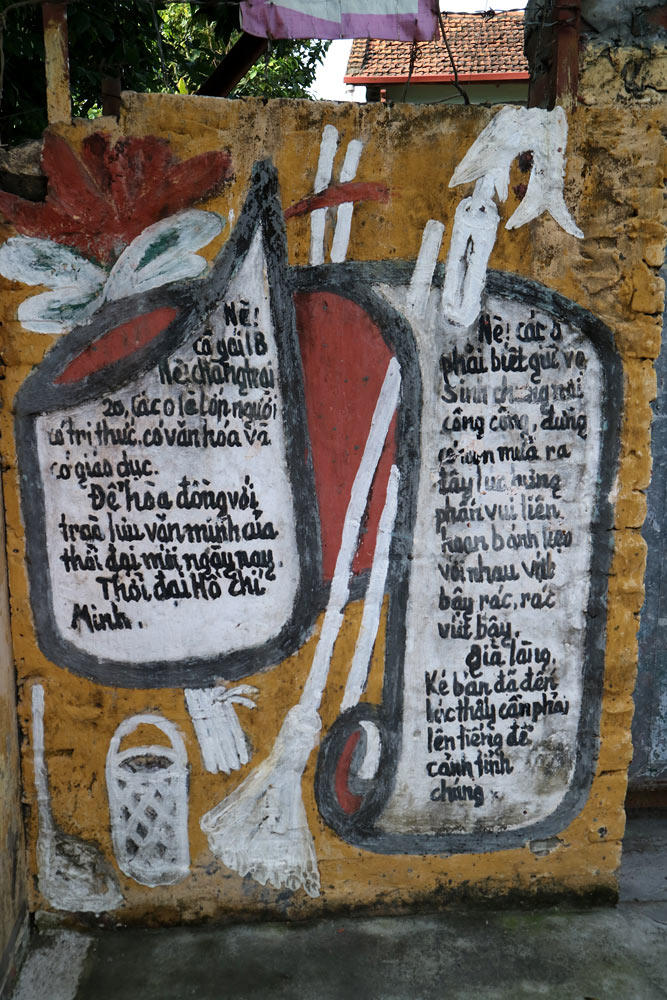 Nè!
cô gái 18
Nè! chàng trai
20, Các o lê lớp người
có tri thức, có văn hóa và
có giáo dục.
Để hòa đồng với
trào lưu văn minh của
thời đại mới ngày nay.
Thời đại Hồ Chí
Minh.
Nè! các
phải biết giữ vệ
Sinh chung nơi
công cộng, đừng
có mưa ra
tây
phấn vui liên
hoan bánh kẹo
với nhau vứt
bậy rác, rác
vứt bậy.
già làng,
Ké bản đã đến
lúc thấy cần phải
lên tiếng để
cảnh tỉnh
chăng